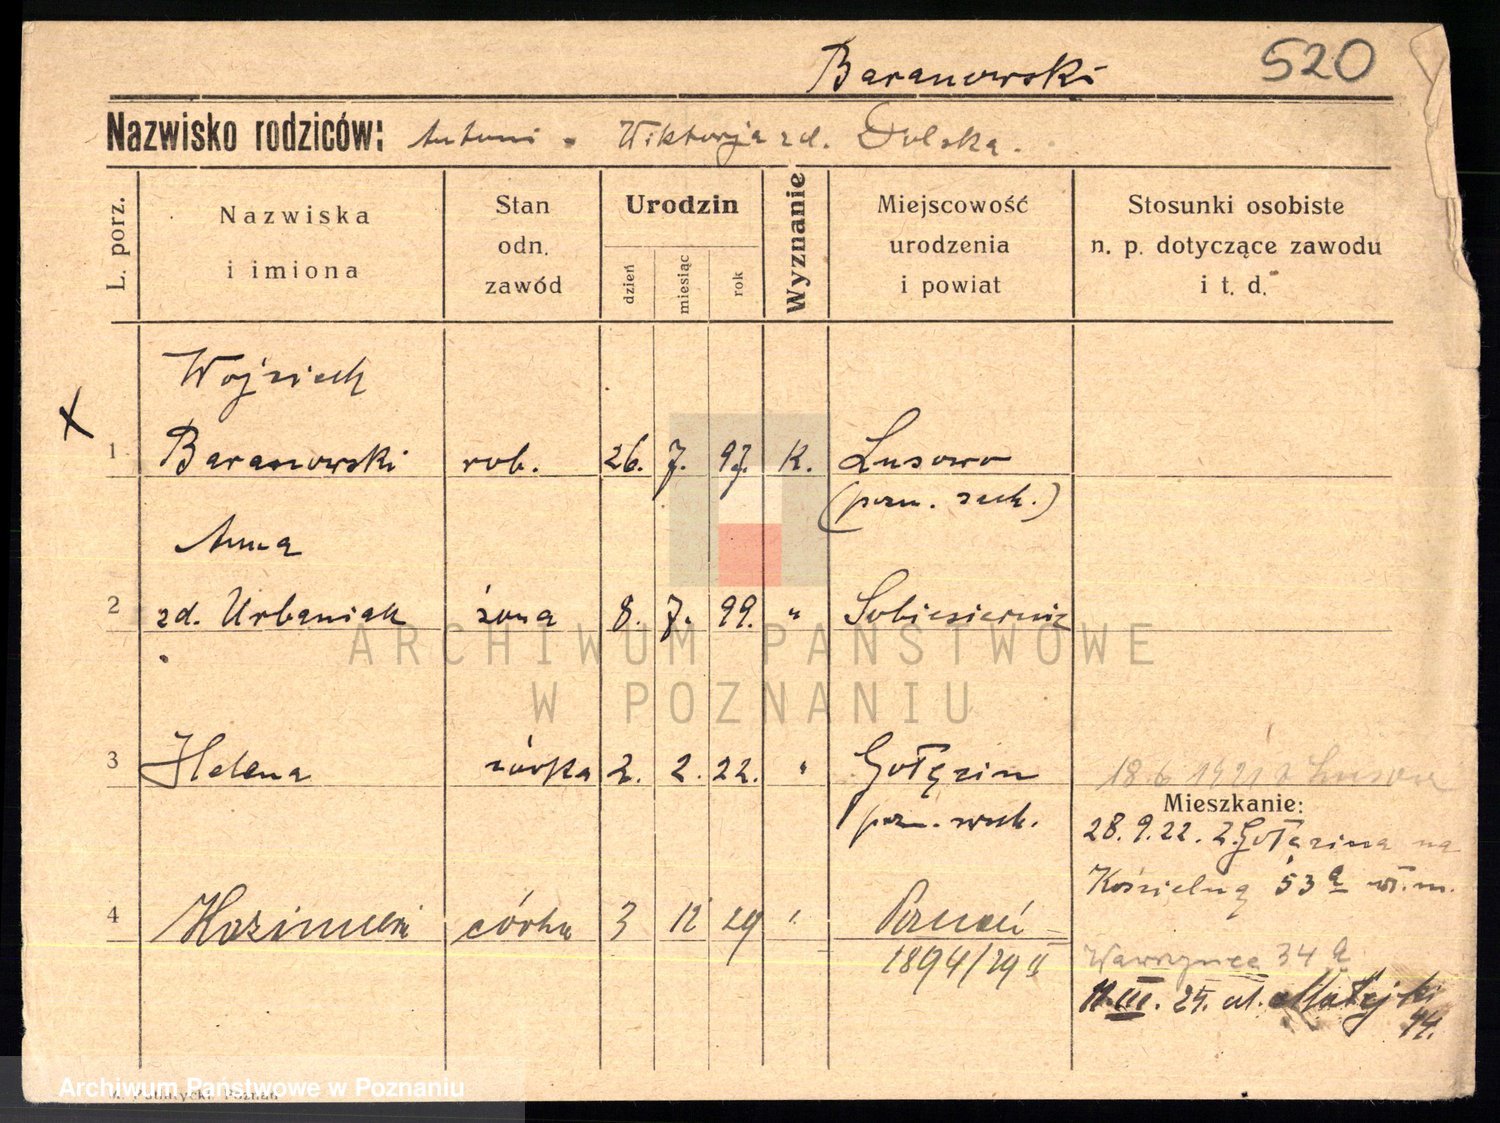 Baranowski 520
Nazwisko rodziców: Antoni - Wiktorja zd. Dolska.
L. porz. Nazwiska i imiona Stan odn. zawód Urodzin dzień miesiąc rok Wyznanie Miejscowość urodzenia i powiat Stosunki osobiste n. p. dotyczące zawodu i t. d.
Wojciech
X 1 Baranowski rob. 26. 7. 97. K. Lusowo
(pozn. zach.)
Anna
2 zd. Urbaniak żona 8. 7. 99. " Sobiesiernie
ARCHIWUM PAŃSTWOWE
W POZNANIU
3 Helena córka 2. 2. 22. " Gołęcin 18 6 1921 z Lusowa
Mieszkanie:
pozn. wsch. 28. 9. 22. z Gołęcina na
Kościelną 53a
4 córka 3 12 29 " Poznań
1894/29 II Wawrzyńca 34a
11. III. 25. ul. Matejki
44.
Archiwum Państwowe w Poznaniu
Poznań